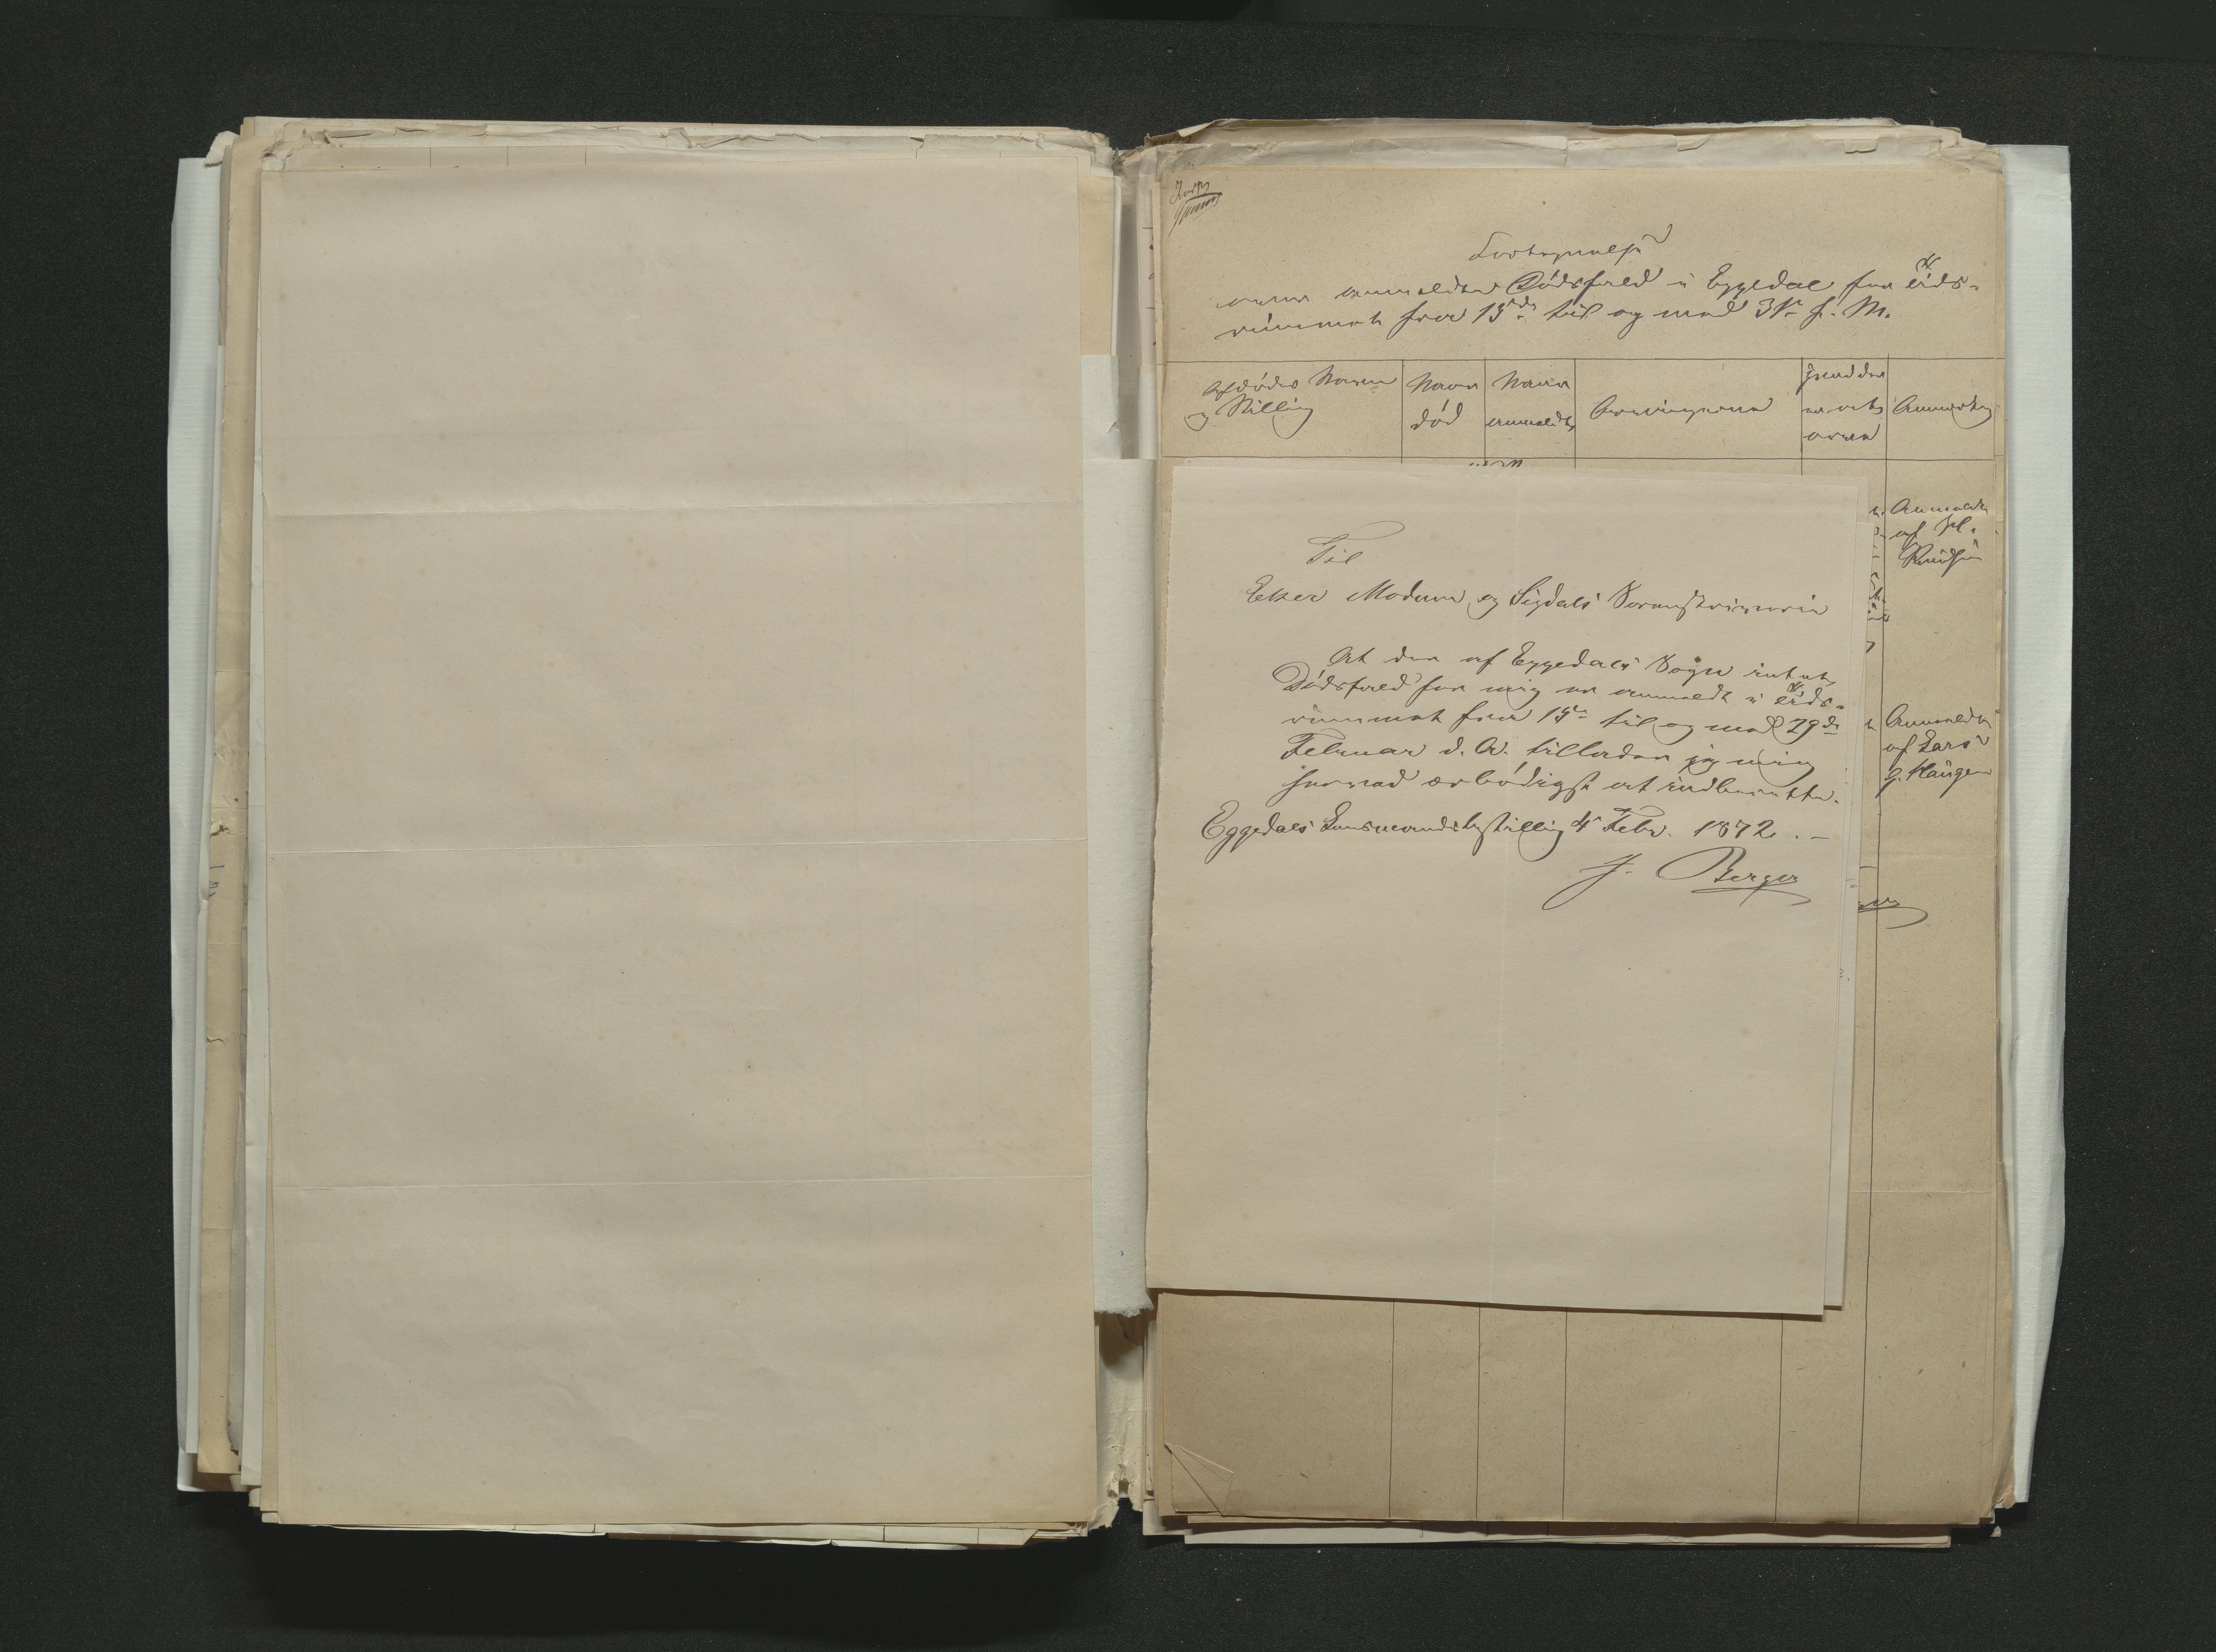 Fortegnelse
over anmeldte Dødsfald i Eggedal for Tids-
rummet fra 15de til og med 31te f. M.
Afdødes Navn
og Stilling
Naar
død
Naar
anmeldt
Arvingerne
Anmærkn
Anmeldt
af
Knudsen
Anmeldt
af Lars
Haugen
Til
Eker Modum og Sigdals Sorenskriverie
At der af Eggedals Sogn intet
Dødsfald for mig er anmeldt i Tids-
rummet fra 15de til og med 29de
Februar d. A. tillader jeg mig
herved ærbødigst at indberette.
Eggedals Lensmandsbestilling 4 Febr. 1872. -
J. Berger